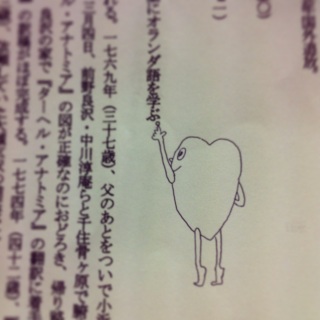 年国外追放。
〇）
）
にオランダ語を学ぶ。
れる。一七六九年（三十七歳）、父のあとをついで小
三月四日、前野良沢・中川淳庵らと千住骨ヶ原で腑
ル・アナトミア』の図が正確なのにおどろき、帰り
良沢の家で『ターヘル・アナトミア』の翻訳に着手
の訳稿がほぼ完成する。一七七四年（四十二歳）、